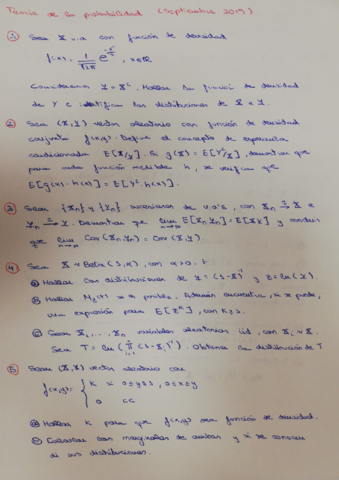 Teoría de la probabilidad (Septiembre 2019)
① Sea X v.a con función de densidad
f(x) = 1/√2π e^(-x²/2), x∈ℝ
Consideramos Y = X². Hallar la función de densidad
de Y e identificar las distribuciones de X e Y.
② Sea (X,Y) vector aleatorio con función de densidad
conjunta f(x,y). Define el concepto de esperanza
condicionada E[Y/X]. Si g(X) = E[Y²/X], demostrar que
para cada función medible h, se verifica que
E[g(X)·h(X)] = E[Y²·h(X)].
③ Sean {Xn} y {Yn} sucesiones de v.a's, con Xn → X e
Yn → Y. Demostrar que lim E[Xn Yn] = E[XY] y concluir
n→∞
que lim Cov(Xn, Yn) = Cov(X,Y).
n→∞
④ Sea X ~ Beta(1,α), con α>0.
ⓐ Hallar las distribuciones de Y = (1-X)⁻¹ y Z = Ln(Y).
ⓑ Hallar M_Z(t) si es posible. Encontrar, si se puede,
una expresión para E[Z^k], con k≥1.
ⓒ Sean X₁,...,Xn variables aleatorias iid, con Xi ~ X.
Sea T = Ln(∏ (1-Xi)⁻¹). Obtener la distribución de T
⑤ Sean (X,Y) vector aleatorio con
f(x,y) = { K x 0≤y≤1, 0≤x≤y
0 cc
ⓐ Hallar K para que f(x,y) sea función de densidad.
ⓑ Calcular las marginales de ambas y si se conocen
di sus distribuciones.